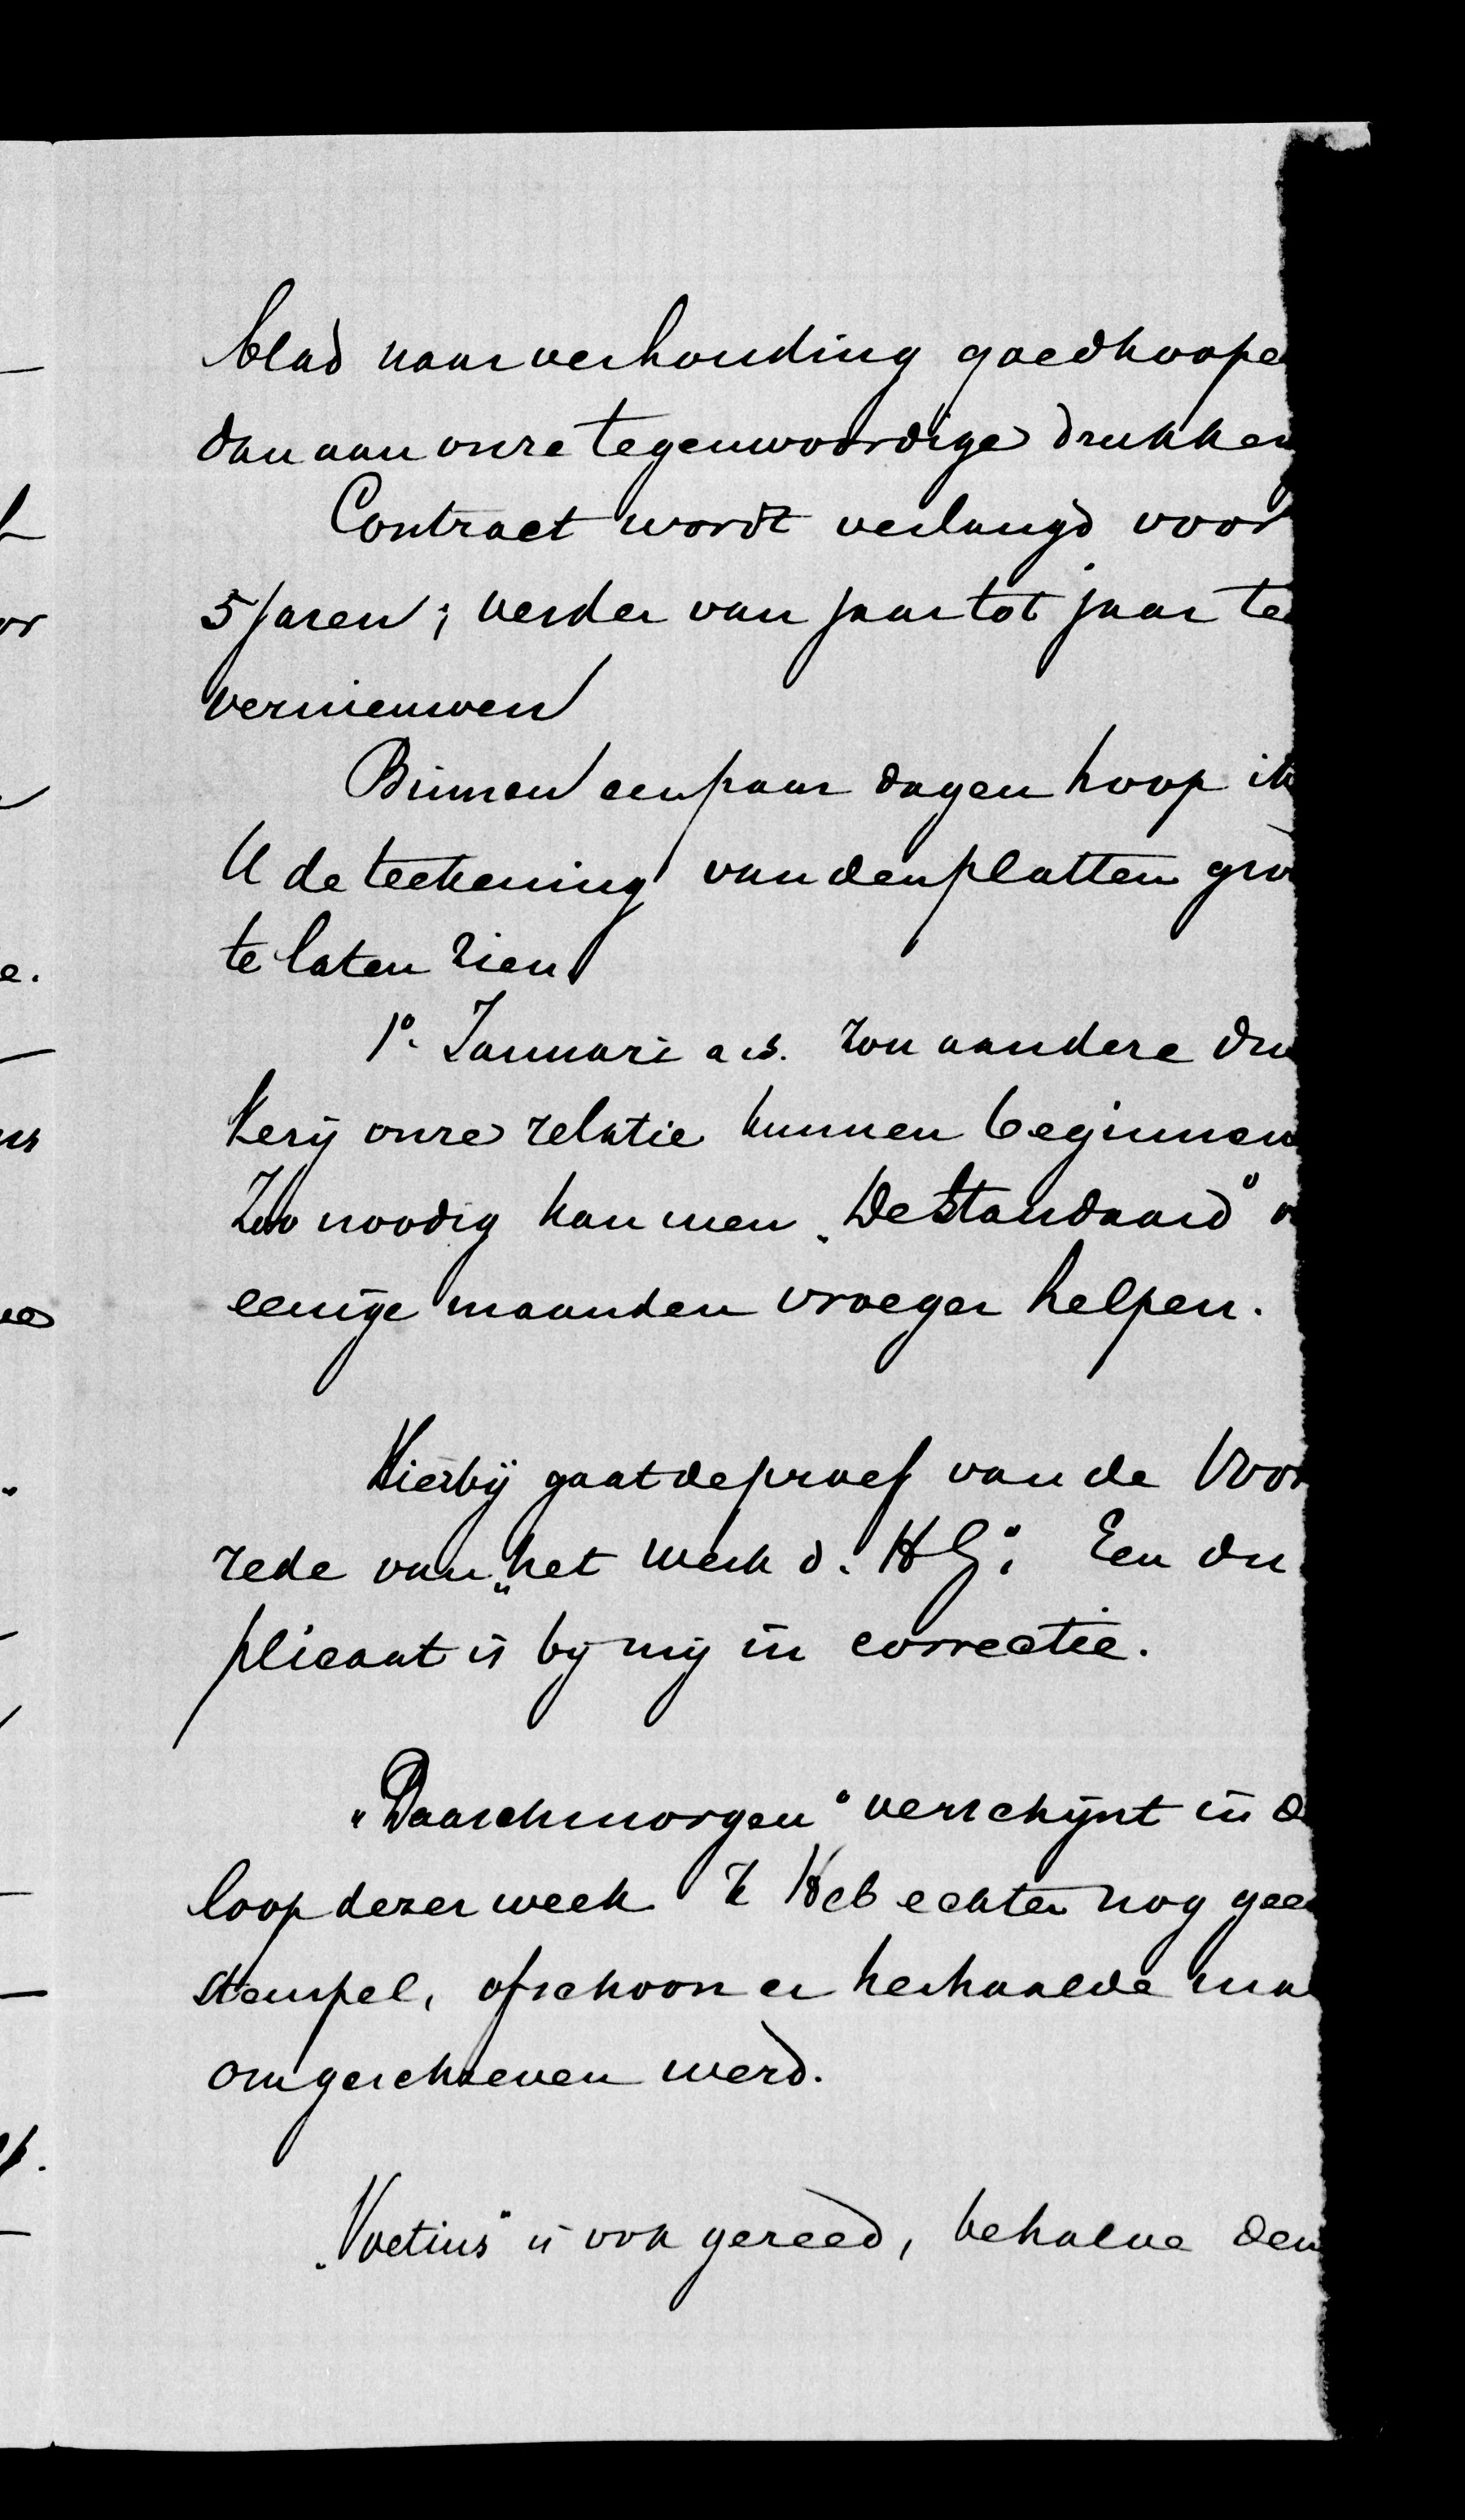 blad naar verhouding goedkoope
dan aan onze tegenwoordige drukker
Contract wordt verlangd voor
5 jaren; verder van jaar tot jaar te
vernieuwen
Binnen een paar dagen hoop ik
U de teekening van den platten gro
te laten zien
1º. Januari a.s. zou aandere dru
kerij onze relatie kunnen beginnen
Zoo noodig kan men „De Standaard" o
eenige maanden vroeger helpen.
Hierbij gaat de proef van de Voor
rede van „het Werk d. HG". Een du
plicaat is bij mij in correctie.
„Paaschmorgen" verschijnt in d
loop dezer week. Ik Heb echter nog geen
stempel, ofschoon er herhaalde ma
om geschreven werd.
„Voetius" is ook gereed, behalve den